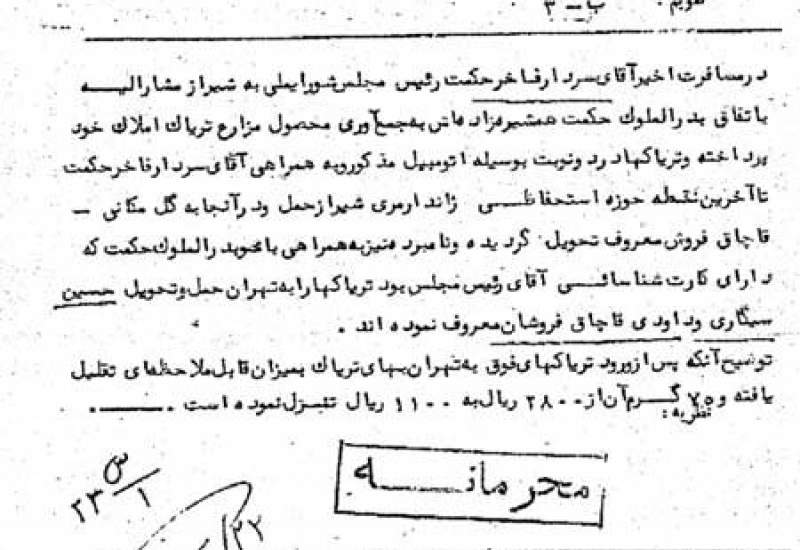 تقویم: ب ـ ۳
در مسافرت اخیر آقای سردار فاخر حکمت رئیس مجلس شورایملی به شیراز مشارالیـــه
باتفاق بدرالملوك حکمت همشیرزاده‌اش به جمع‌آوری محصول مزارع تریاك املاك خود
پرداخته وتریاکها در دو نوبت بوسیله اتومبیل مذکور و به همراهی آقای سردار فاخر حکمت
تا آخرین نقطه حوزه استحفاظـی ژاندارمری شیراز حمل ودر آنجا به گل مکانی ـ
قاچاق فروش معروف تحویل گردیده ونامبرده نیز به همراهی بانو بدرالملوك حکمت که
دارای کارت شناسائی آقای رئیس مجلس بود تریاکها را به تهران حمل وتحویل حسین
سیگاری و داودی قاچاق فروشان معروف نموده اند .
توضیح آنکه پس از ورود تریاکهای فوق به تهران بهای تریاك بمیزان قابل ملاحظه‌ای تقلیل
یافته و ۷۵ گرم آن از ۲۸۰۰ ریال به ۱۱۰۰ ریال تنزل نموده است .
نظریه :
محرمانــه
س
۱
۲۳
۲۲